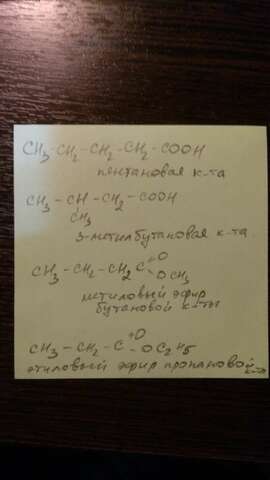 CH3-CH2-CH2-CH2-COOH
пентановая к-та
CH3-CH-CH2-COOH
CH3
3-метилбутановая к-та
CH3-CH2-CH2 C=O
OCH3
метиловый эфир
бутановой к-ты
CH3-CH2-C=O
OC2H5
этиловый эфир пропановой
к-ты